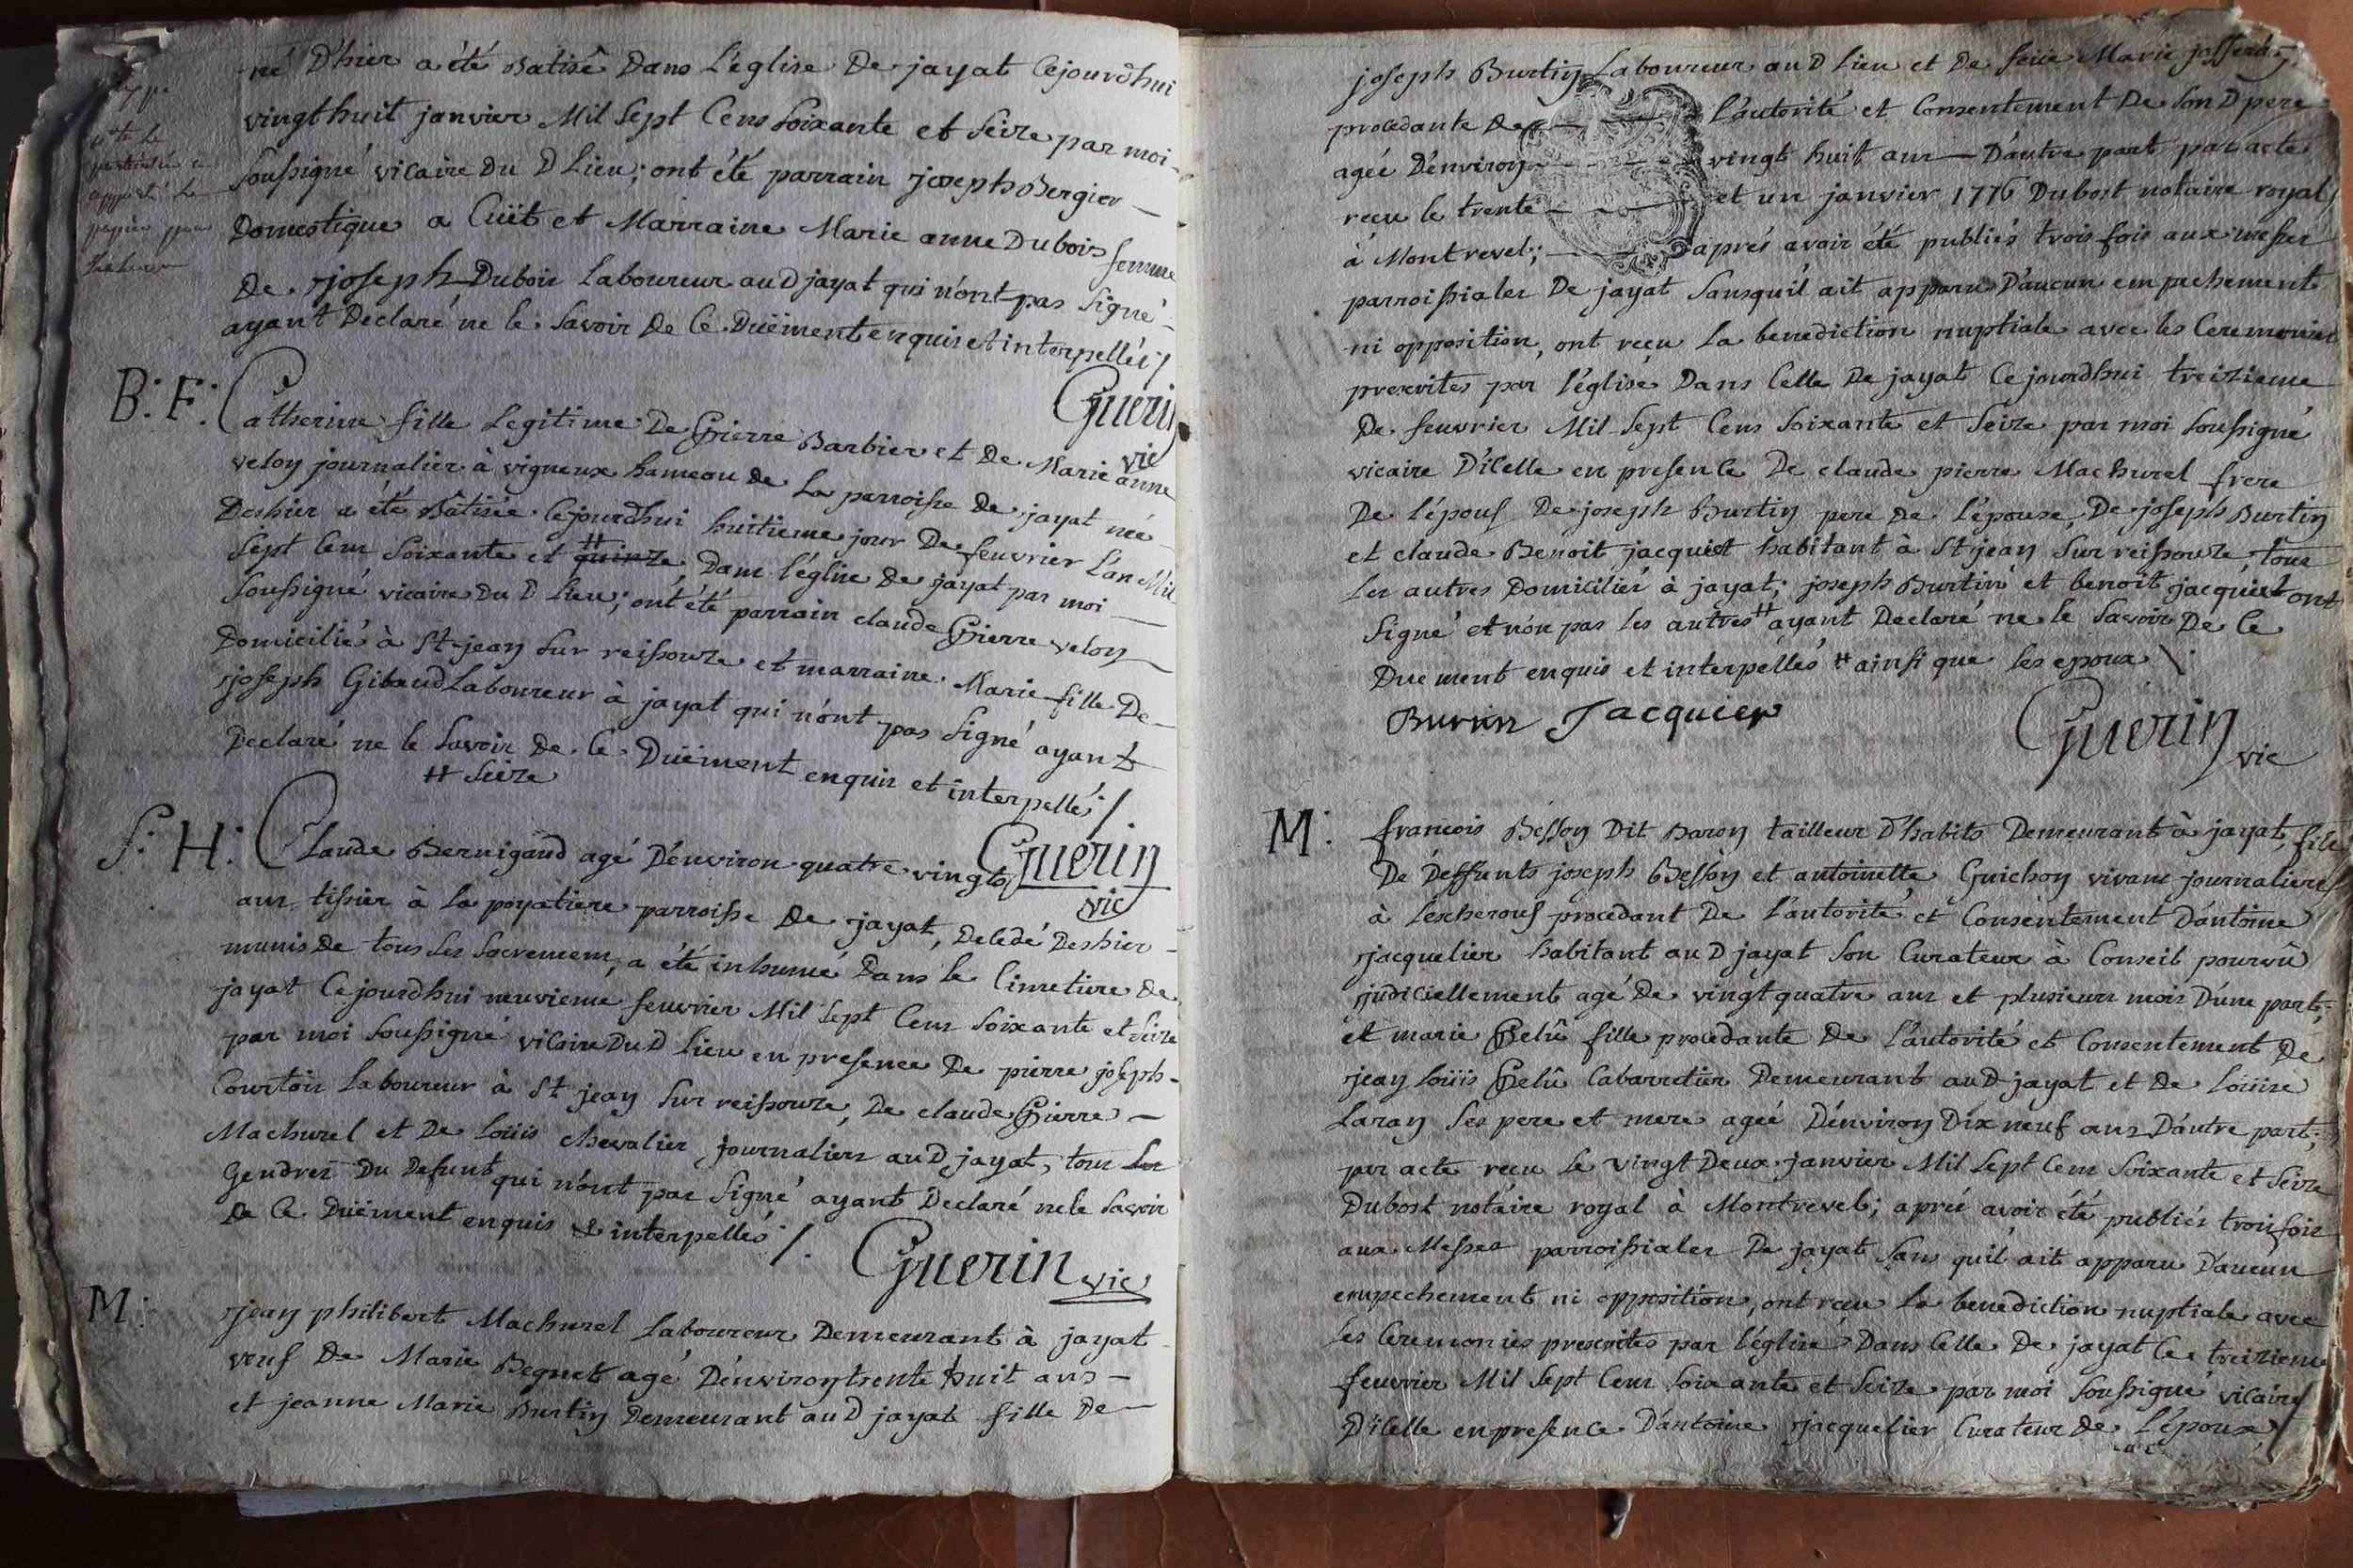 né D'hier a été Batisé Dans L'église De jayat Cejourdhui
vingthuit janvier Mil Sept Cens Soixante et Seize par moi
Soussigné vicaire Du D Lieu; ont été parrain joseph Bergier
Domestique a Cüet et Marraine Marie anne Dubois femme
De joseph Dubois Laboureur au D jayat qui n'ont pas Signé
ayant Declaré ne le Savoir De Ce Düement enquis et interpellés /
Guerin
vic
B: F: Catherine fille Legitime De Pierre Barbier et De Marie anne
velon journalier à vigneux hameau de La parroisse De jayat née
Deshier a été Bâtisée Cejourdhui huitieme jour De feuvrier L'an Mil
Sept Cens Soixante et quinze # Dans l'église De jayat par moi
Soussigné vicaire Du D Lieu; ont été parrain claude Pierre velon
Domicilié à St jean Sur reissouze et marraine Marie fille De
joseph Gibaud Laboureur à jayat qui n'ont pas Signé ayant
Declaré ne le Savoir De Ce Düement enquis et interpellés /
# Seize
Guerin
vic
S: H: Claude Bernigaud agé D'environ quatre vingts
ans tissier à la poyatiere parroisse De jayat, Decedé Deshier
munis de tous Ses Sacremens, a été inhumé Dans le Cimetiere De
jayat Cejourdhui neuvieme feuvrier Mil Sept Cens Soixante et Seize
par moi Soussigné vicaire Du D Lieu en presence De pierre joseph
Courtois Laboureur à St jean Sur reissouze, De claude Pierre
Machurel et De Loüis chevalier journaliers au D jayat, tous Les
Gendres Du Defunt qui n'ont pas Signé ayant Declaré ne le Savoir
De Ce Düement enquis & interpellés /.
Guerin vic
M: jean philibert Machurel Laboureur Demeurant à jayat
veuf De Marie Beguet agé D'environ trente huit ans
et jeanne Marie Burtin Demeurant au D jayat fille De
joseph Burtin Laboureur au D Lieu et De feüe Marie
procedante De L'autorité et Consentement De Son D pere
agée D'environ vingt huit ans D'autre part par acte
reçu le trente et un janvier 1776 Dubost notaire royal
à Montrevel; aprés avoir été publiés trois fois aux messes
parroissiales De jayat Sansquil ait apparu D'aucun empechement
ni opposition, ont reçu La benediction nuptiale avec les Ceremonies
prescrites par l'église Dans Celle De jayat Cejourdhui treizieme
De feuvrier Mil Sept Cens Soixante et Seize par moi Soussigné
vicaire D'icelle en presence De claude pierre Machurel frere
De L'épous De joseph Burtin pere De L'épouse, De joseph Burtin
et claude Benoit jacquiet habitant à St jean Sur reissouze, tous
Les autres Domiciliés à jayat; joseph Burtin et benoit jacquiet ont
Signé et non pas les autres # ayant Declaré ne le Savoir De Ce
Duement enquis et interpellés # ainsi que les epoux
Burtin Jacquier
Guerin vic
M: francois Besson Dit Baron tailleur D'habits Demeurant à jayat, fils
De Deffunts joseph Besson et antoinette Guichon vivans journaliers
à Lescherous procedant De L'autorité et Consentement D'antoine
jacquelier habitant au D jayat Son Curateur à Conseil pourvû
judiciellement agé De vingt quatre ans et plusieurs mois D'une part;
et marie Pelû fille procedante De L'autorité et Consentement De
jean Loüis Pelû Cabarretier Demeurant au D jayat et De Loüise
Laran Ses pere et mere agée D'environ Dix neuf ans D'autre part;
par acte recu Le vingt Deux janvier Mil Sept Cens Soixante et Seize
Dubost notaire royal à Montrevel; aprés avoir été publiés trois fois
aux Messes parroissiales De jayat Sans quil ait apparu D'aucun
empechement ni opposition, ont recu La benediction nuptiale avec
Les Ceremonies prescrites par l'église Dans Celle De jayat Ce treizieme
feuvrier Mil Sept Cens Soixante et Seize par moi Soussigné vicaire
D'icelle en presence D'antoine jacquelier Curateur de L'époux